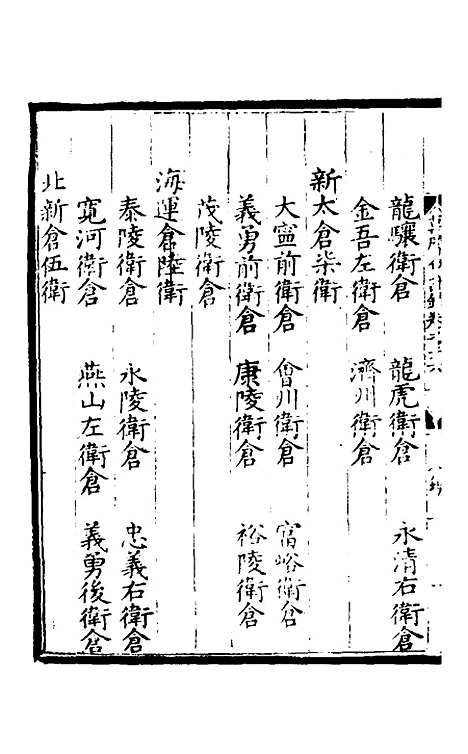 龍驤衛倉 龍虎衛倉 永清右衛倉
金吾左衛倉 濟州衛倉
新太倉柒衛
大寧前衛倉 會川衛倉 富峪衛倉
義勇前衛倉 康陵衛倉 裕陵衛倉
茂陵衛倉
海運倉陸衛
泰陵衛倉 永陵衛倉 忠義右衛倉
寬河衛倉 燕山左衛倉 義勇後衛倉
北新倉伍衛